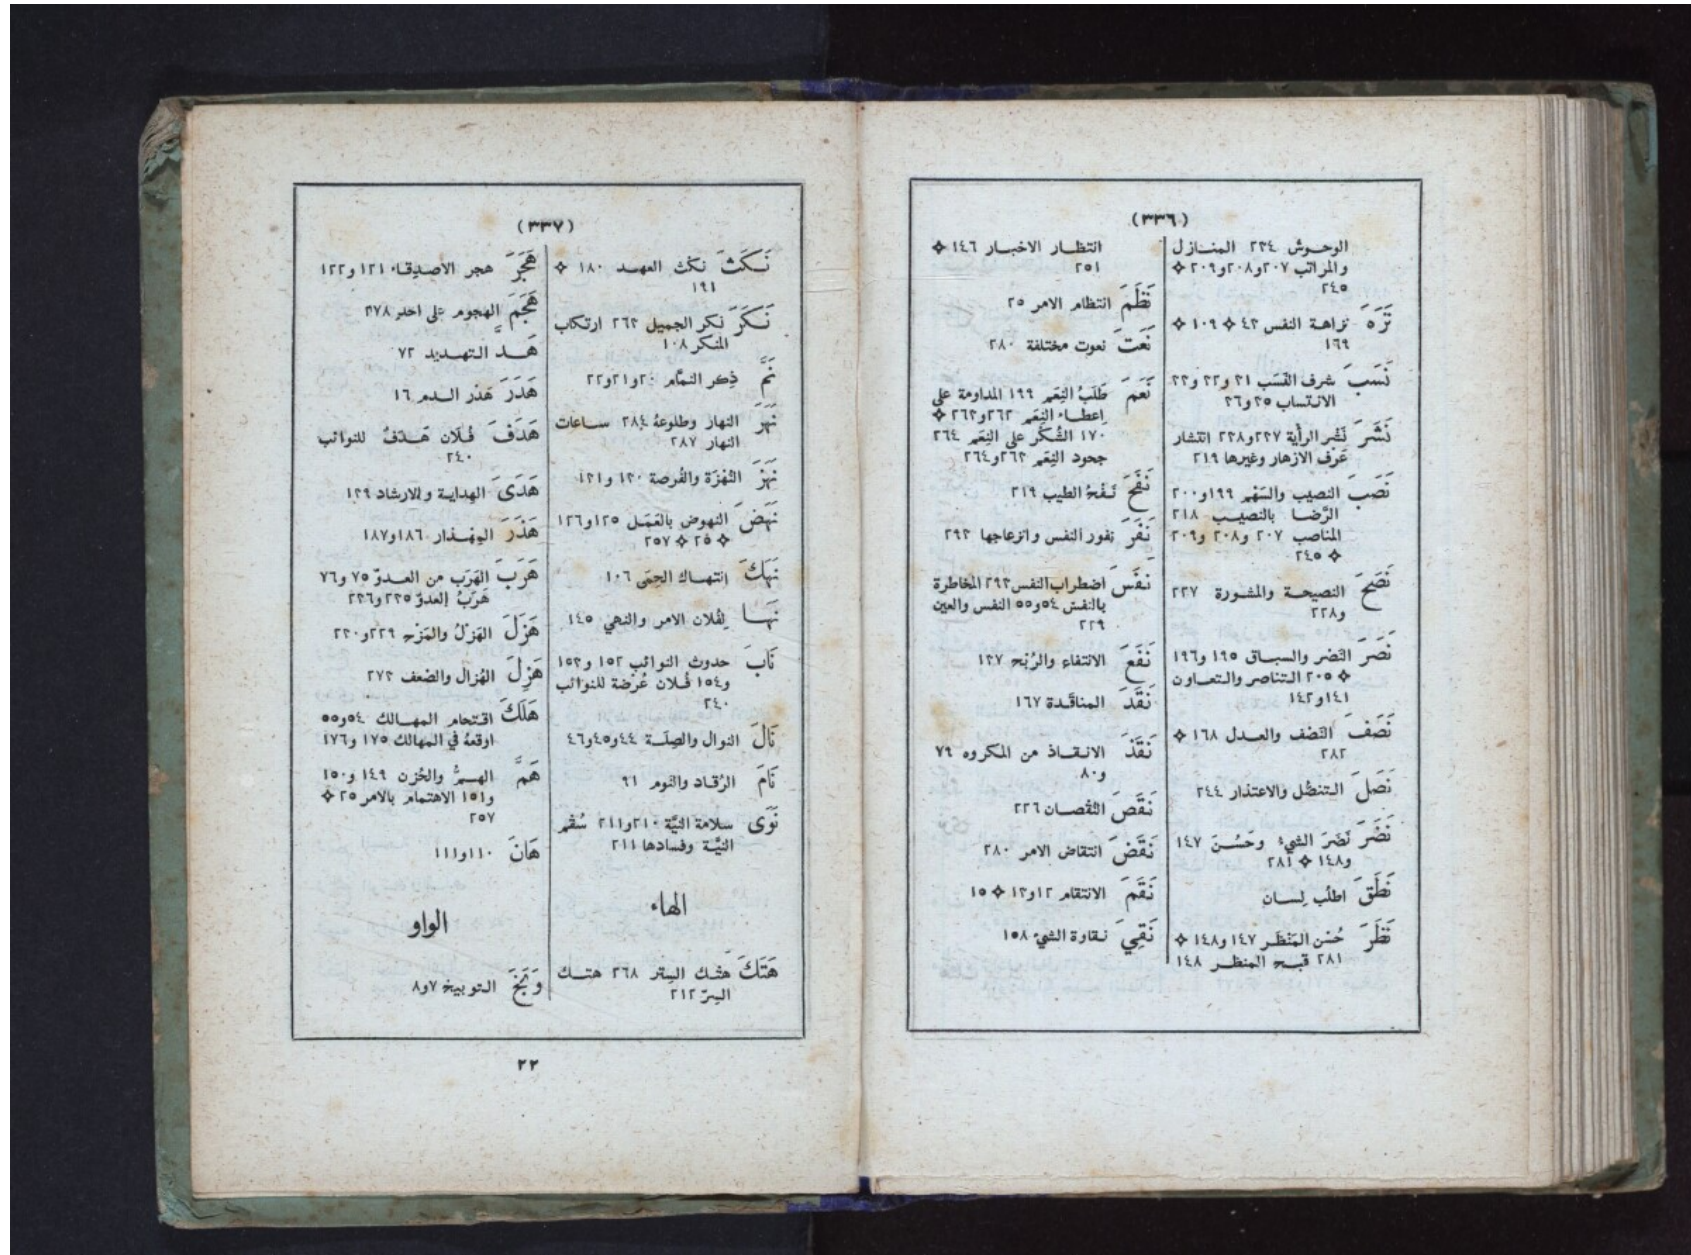 (٣٣٦)
الوحوش ٢٣٤ المنازل
والمراتب ٢٠٧ و٢٠٨ و٢٠٩ ✧
٢٤٥
نَزُهَ نزاهة النفس ٤٢ ✧ ١٠٩ ✧
١٦٩
نَسَبَ شرف النَّسَب ٢١ و٢٢ و٢٣
الانتساب ٢٥ و٢٦
نَشَرَ نَشْر الرأية ٢٢٧ و٢٢٨ انتشار
عَرف الازهار وغيرها ٢١٩
نَصَبَ النصيب والسَهْم ١٩٩ و٢٠٠
الرِّضا بالنصيب ٢١٨
المناصب ٢٠٧ و٢٠٨ و٢٠٩
✧ ٢٤٥
نَصَحَ النصيحة والمشورة ٢٢٧
و٢٢٨
نَصَرَ النَصْر والسباق ١٩٥ و١٩٦
✧ ٢٠٥ التناصر والتعاون
١٤١ و١٤٢
نَصَفَ النَصَف والعدل ١٦٨ ✧
٢٨٢
نَصَلَ التنصُّل والاعتذار ٢٤٤
نَضُرَ نَضَرَ الشيءُ وحَسُنَ ١٤٧
و١٤٨ ✧ ٢٨١
نَطَقَ اطلُب لِسان
نَظَرَ حُسْن المَنْظَر ١٤٧ و١٤٨ ✧
٢٨١ قبح المنظر ١٤٨
انتظار الاخبار ١٤٦ ✧
٢٥١
نَظَمَ انتظام الامر ٢٥
نَعَتَ نعوت مختلفة ٢٨٠
نَعَمَ طَلَبُ النِعَم ١٩٩ المداومة على
إعطاء النِعَم ٢٦٢ و٢٦٣ ✧
١٧٠ الشُكْر على النِعَم ٢٦٤
جحود النِعَم ٢٦٣ و٢٦٤
نَفَحَ نَفْحُ الطيب ٢١٩
نَفَرَ نفور النفس وانزعاجها ٢٩٣
نَفَسَ اضطراب النفس ٢٩٣ المخاطرة
بالنفس ٥٤ و٥٥ النفس والعين
٢٢٩
نَفَعَ الانتفاع والرُبْح ١٢٧
نَقَدَ المناقَدة ١٦٧
نَقَذَ الانقاذ من المكروه ٧٩
و٨٠
نَقَصَ النُقْصان ٢٢٦
نَقَضَ انتقاض الامر ٢٨٠
نَقَمَ الانتقام ١٢ و١٣ ✧ ١٥
نَقِيَ نقاوة الشيء ١٥٨
(٣٣٧)
نَكَثَ نكْث العهد ١٨٠ ✧
١٩١
نَكَرَ نكر الجميل ٢٦٣ ارتكاب
المنكر ١٠٨
نَمَّ ذِكر النمَّام ٢٠ و٢١ و٢٢
نَهَرَ النهار وطلوعهُ ٢٨٤ ساعات
النهار ٢٨٧
نَهَزَ النُهْزَة والفُرصة ١٢٠ و١٢١
نَهَضَ النهوض بالعَمَل ١٢٥ و١٢٦
✧ ٢٥ ✧ ٢٥٧
نَهَكَ إنتهاك الحِمَى ١٠٦
نَهَا لِفُلان الامر والنهي ١٤٥
نَابَ حدوث النوائب ١٥٢ و١٥٣
و١٥٤ فُلان عُرْضة للنوائب
٢٤٠
نَالَ النوال والصِلَة ٤٤ و٤٥ و٤٦
نَامَ الرُقاد والنوم ٩١
نَوَى سلامة النيَّة ٢١٠ و٢١١ سُقْم
النيَّة وفسادها ٢١١
الهاء
هَتَكَ هَتْك السِتر ٢٦٨ هتك
السِرّ ٢١٢
هَجَرَ هجر الاصدِقاء ١٢١ و١٢٢
هَجَمَ الهجوم على احدٍ ٢٧٨
هَدَّ التهديد ٧٢
هَدَرَ هَدْر الدم ١٦
هَدَفَ فُلَان هَدَفٌ للنوائب
٢٤٠
هَدَى الهِداية والارشاد ١٢٩
هَذَرَ المِهْذار ١٨٦ و١٨٧
هَرَبَ الهَرَب من العدوّ ٧٥ و٧٦
هَرَبُ العدوّ ٢٢٥ و٢٢٦
هَزَلَ الهَزْلُ والمَزْح ٢٢٩ و٢٣٠
هَزِلَ الهُزال والضعف ٢٧٣
هَلَكَ اقتحام المهالك ٥٤ و٥٥
اوقعهُ في المهالك ١٧٥ و١٧٦
هَمَّ الهمُّ والحُزن ١٤٩ و١٥٠
و١٥١ الاهتمام بالامر ٢٥ ✧
٢٥٧
هَانَ ١١٠ و١١١
الواو
وَبَّخَ التوبيخ ٧ و٨
٢٢